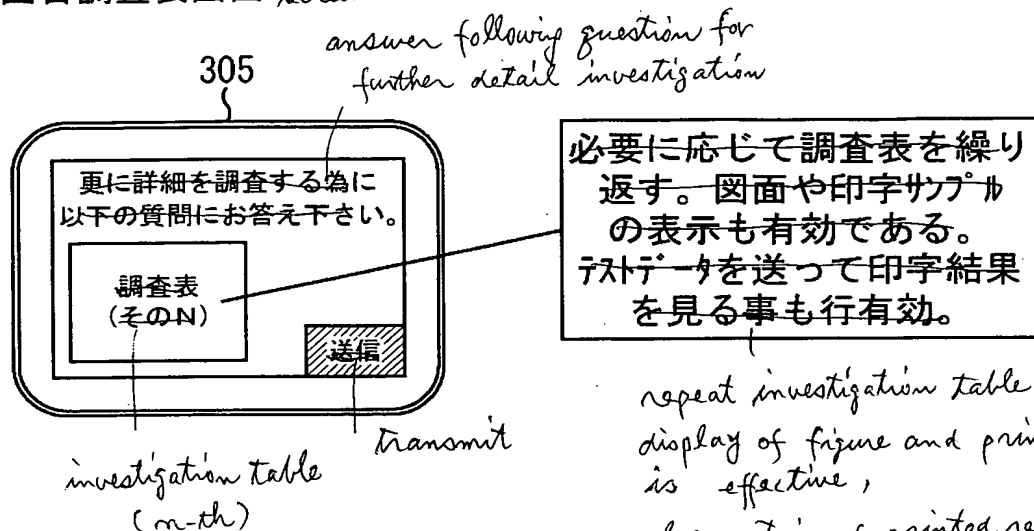 answer following question for
further detail investigation
305
更に詳細を調査する為に
以下の質問にお答え下さい。
調査表
(そのN)
送信
必要に応じて調査表を繰り
返す。図面や印字サンプル
の表示も有効である。
テストデータを送って印字結果
を見る事も行有効。
transmit
investigation table
(n-th)
repeat investigation table
display of figure and
is effective,